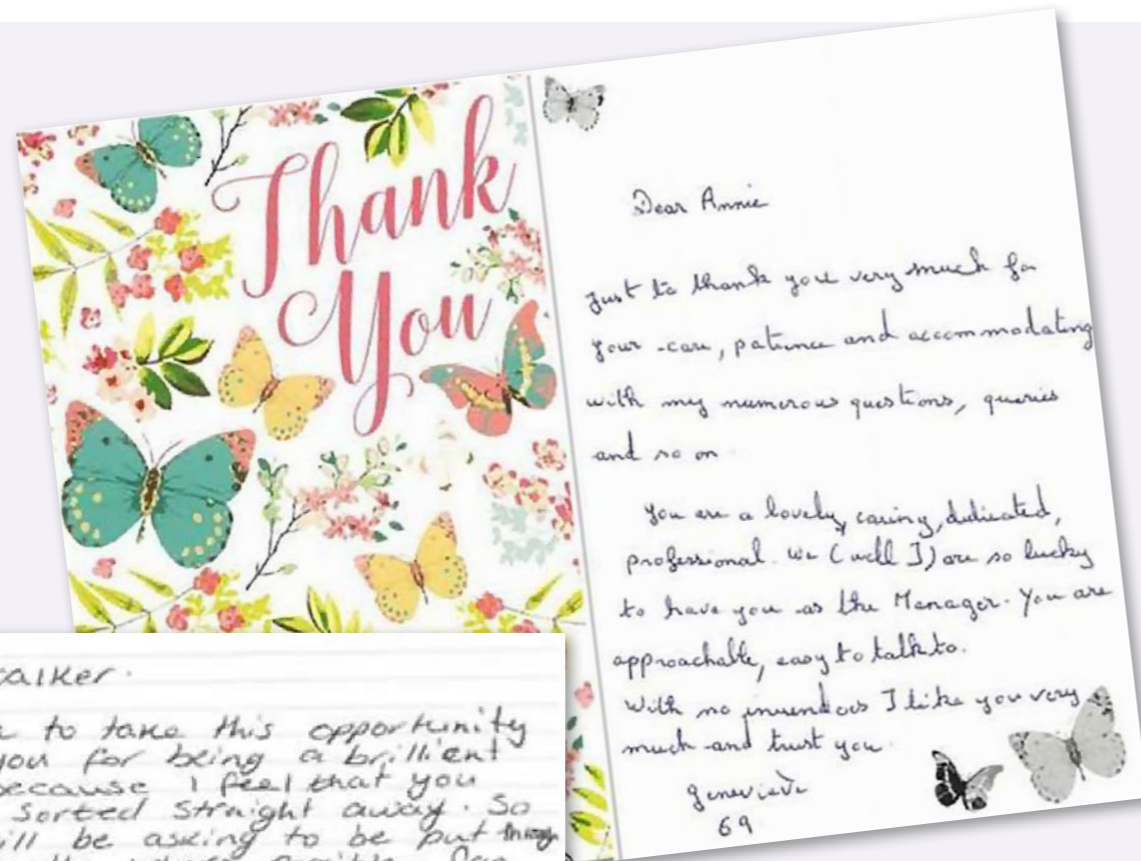 Thank
You
Dear Annie
Just to thank you very much for
your care, patience and accommodating
with my numerous questions, queries
and so on
You are a lovely, caring, dedicated,
professional. We (well I) are so lucky
to have you as the Manager. You are
approachable, easy to talk to.
With no inuendoes I like you very
much and trust you.
Genevieve
69
alker.
to take this opportunity
you for being a brillient
ecause I feel that you
Sorted Straight away. So
ill be asking to be put through